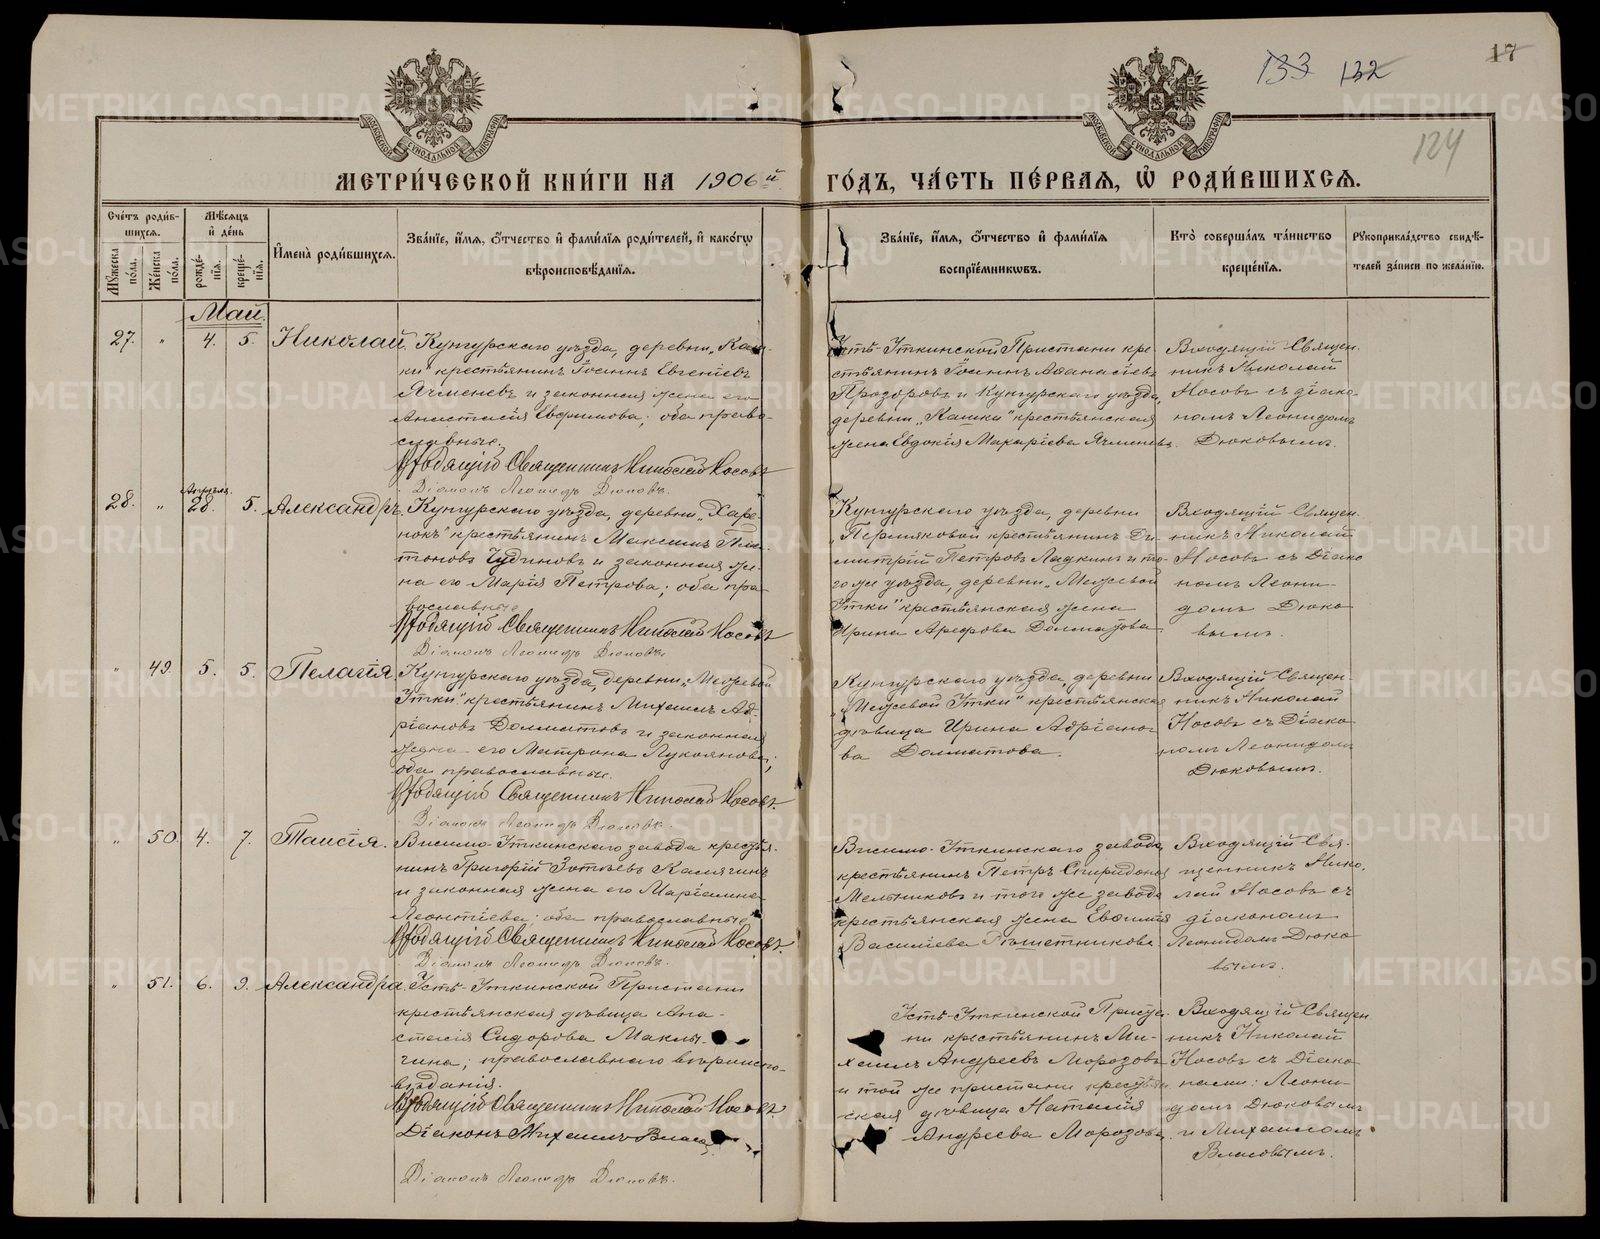 133 132
17
124
МОСКОВСКОЙ СѴНОДАЛЬНОЙ ТИПОГРАФІИ
МОСКОВСКОЙ СѴНОДАЛЬНОЙ ТИПОГРАФІИ
МЕТРИ́ЧЕСКОЙ КНИ́ГИ НА 1906й
ГО́ДЪ, ЧА́СТЬ ПЕ́РВАЯ, Ѡ҆ РОДИ́ВШИХСЯ.
Сче́тъ роди́в-
шихся.
Мꙋ́жеска по́ла.
Же́нска по́ла.
Мѣ́сяцъ
и҆ де́нь
рожде́-
нїя.
креще́-
нїя.
И҆мена̀ роди́вшихся.
Зва́нїе, и҆́мя, ѻ҆́тчество и҆ фами́лїя роди́телей, и҆ како́гѡ
вѣроисповѣ́данїя.
Зва́нїе, и҆́мя, ѻ҆́тчество и҆ фами́лїя
воспрїе́мникѡвъ.
Кто̀ соверша́лъ та́инство
креще́нїя.
Рꙋкоприкла́дство свидѣ́-
телей за́писи по жела́нїю.
Май.
27. „ 4. 5. Николай.
Кунгурскаго уѣзда, деревни „Каш-
ки" крестьянинъ Іоаннъ Евгеніевъ
Ячменевъ и законная жена его
Анастасія Евфимова; оба право-
славные.
Входящій Священникъ Николай Носовъ
Діаконъ Леонидъ Дюковъ.
Усть-Уткинской Пристани кре-
стьянинъ Іоаннъ Аѳанасіевъ
Прозоровъ и Кунгурскаго уѣзда,
деревни „Кашки" крестьянская
жена Евдокія Макаріева Ячменева.
Входящій Священ-
никъ Николай
Носовъ съ діако-
номъ Леонидомъ
Дюковымъ.
28. „ Апрѣля 28. 5. Александръ.
Кунгурскаго уѣзда, деревни „Харе-
нокъ" крестьянинъ Максимъ Пла-
тоновъ Чудиновъ и законная же-
на его Марія Петрова; оба пра-
вославные
Входящій Священникъ Николай Носовъ
Діаконъ Леонидъ Дюковъ.
Кунгурскаго уѣзда, деревни
„Пермяковой крестьянинъ Ди-
митрій Петровъ Ладкинъ и то-
го же уѣзда, деревни „Межевой
Утки" крестьянская жена
Ирина Ареѳова Долматова
Входящій Священ-
никъ Николай
Носовъ съ Діако
номъ Леони-
домъ Дюко
вымъ.
„ 49. 5. 5. Пелагія.
Кунгурскаго уѣзда, деревни „Межевой
Утки" крестьянинъ Михаилъ Ад-
ріановъ Долматовъ и законная
жена его Матрона Лукоянова;
оба православные.
Входящій Священникъ Николай Носовъ.
Діаконъ Леонидъ Дюковъ.
Кунгурскаго уѣзда, деревни
„Межевой Утки" крестьянская
дѣвица Ирина Адріано-
ва Долматова.
Входящій Священ
никъ Николай
Носовъ съ Діако
номъ Леонидомъ
Дюковымъ.
„ 50 4. 7. Таисія.
Висимо-Уткинскаго завода крестья-
нинъ Григорій Зотіевъ Калягинъ
и законная жена его Маріамна
Леонтіева; оба православные
Входящій Священникъ Николай Носовъ.
Діаконъ Леонидъ Дюковъ.
Висимо-Уткинскаго завода
крестьянинъ Петръ Спиридонов
Мельниковъ и того же завода
крестьянская жена Евѳимія
Василіева Рѣшетникова
Входящій Свя-
щенникъ Нико-
лай Носовъ съ
діакономъ
Леонидомъ Дюко
вымъ.
„ 51. 6. 9. Александра.
Усть-Уткинской Пристани
крестьянская дѣвица Ана-
стасія Сидорова Маклы-
гина; православнаго вѣроиспо-
вѣданія.
Входящій Священникъ Николай Носовъ.
Діаконъ Михаилъ Власо
Діаконъ Леонидъ Дюковъ.
Усть-Уткинской Приста-
ни крестьянинъ Ми-
хаилъ Андреевъ Морозовъ
и той же пристани крестьян
ская дѣвица Наталія
Андреева Морозова.
Входящій Священ
никъ Николай
Носовъ съ Діако
нами: Леони-
домъ Дюковымъ
и Михаиломъ
Власовымъ.
METRIKI.GASO-URAL.RU